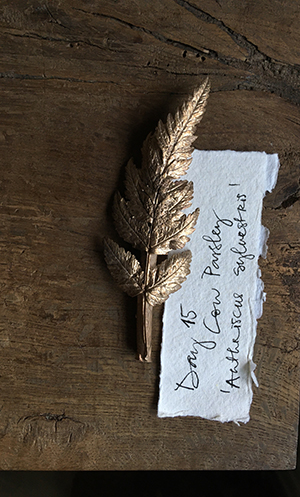 Day 15
Cow Parsley
'Anthriscus sylvestris'